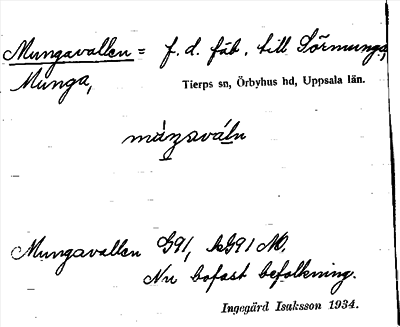 Mungavallen = f. d. fäb. till Sörmunga,
Munga,
Tierps sn, Örbyhus hd, Uppsala län.
Mungavallen G91, NO.
Nu bofast befolkning.
Ingegärd Isaksson 1934.